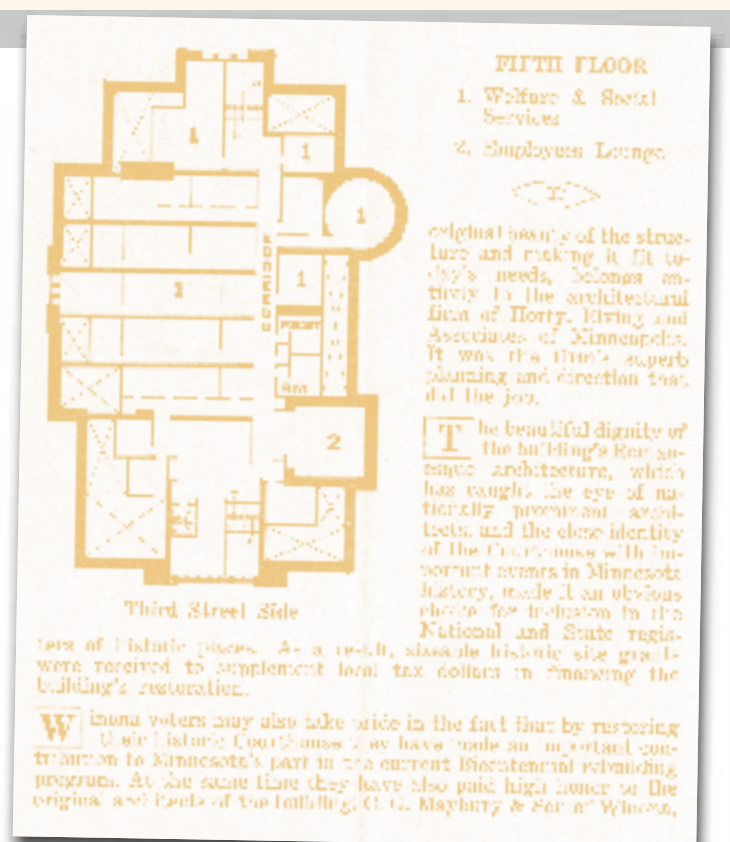 FIFTH FLOOR
1. Welfare & Social
Services
2. Employees Lounge
1
1
1
1
1
2
CORRIDOR
Third Street Side
original beauty of the struc-
ture and making it fit to-
day's needs, belongs en-
tirely to the architectural
firm of Horty, Elving and
Associates of Minneapolis.
It was the firm's superb
planning and direction that
did the job.
The beautiful dignity of
the building's Roman-
esque architecture, which
has caught the eye of na-
tionally prominent archi-
tects, and the close identity
of the Courthouse with im-
portant events in Minnesota
history, made it an obvious
choice for inclusion in the
National and State regis-
ters of historic places. As a result, sizeable historic site grants
were received to supplement local tax dollars in financing the
building's restoration.
Winona voters may also take pride in the fact that by restoring
their historic Courthouse they have made an important con-
tribution to Minnesota's part in the current Bicentennial rebuilding
program. At the same time they have also paid high honor to the
original architects of the building, C. G. Maybury & Son of Winona,